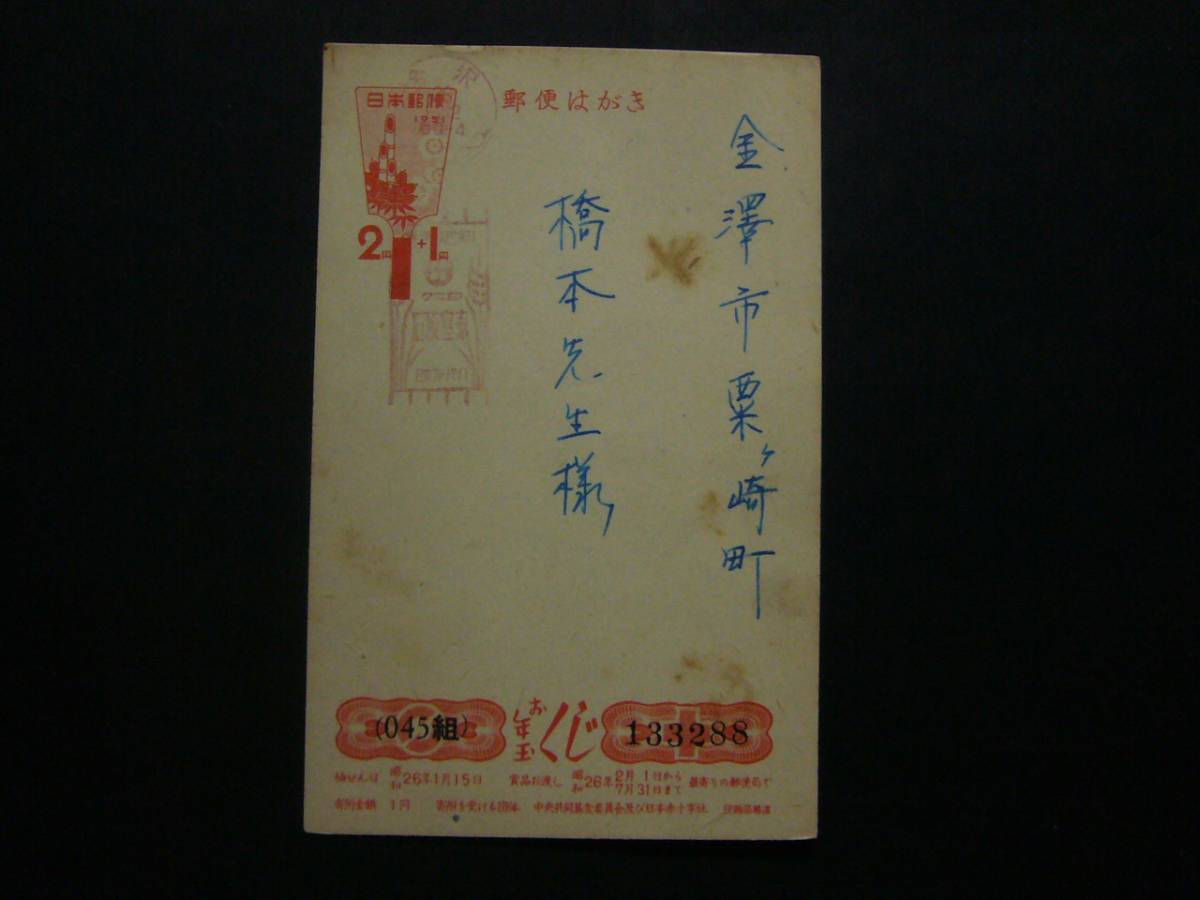 郵便はがき
日本郵便
1951
2円+1円
金澤市粟ヶ崎町
橋本先生様
(045組)
お年玉くじ
133288
抽せん日 昭和26年1月15日 賞品お渡し 昭和26年2月1日から7月31日まで 最寄りの郵便局で
寄附金額 1円 寄附を受ける団体 中央共同募金委員会及び日本赤十字社 印刷局製造